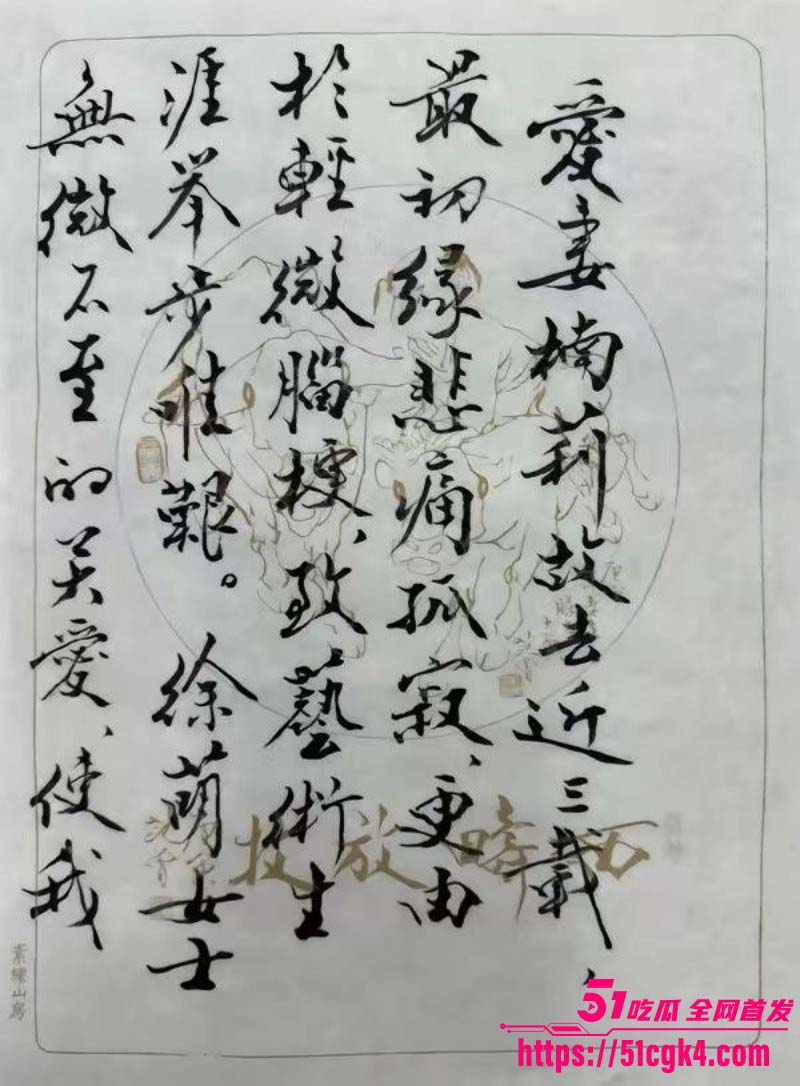 愛妻楠莉故去近三載、
最初緣悲痛孤寂、更由
於輕微腦梗、致藝術生
涯举步唯艱。徐萌女士
無微不至的关愛、使我
西疇放牧
素練山房
51吃瓜 全网首发
https://51cgk4.com